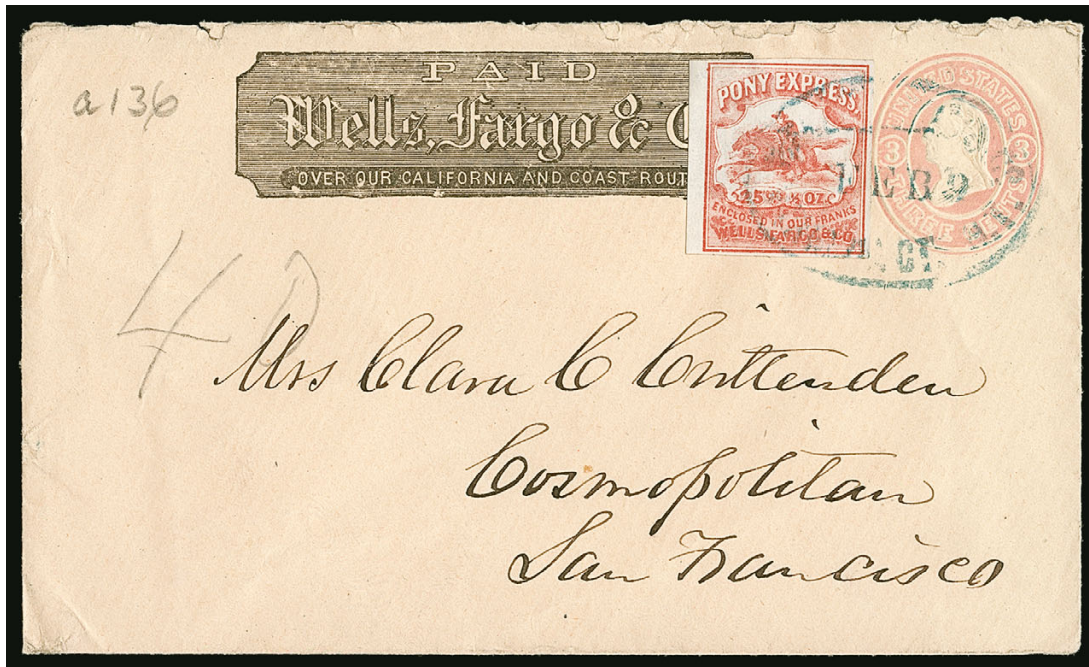 a 136
PAID
Wells, Fargo & C
OVER OUR CALIFORNIA AND COAST ROUT
PONY EXPRESS
25 cts ½ OZ.
IF
ENCLOSED IN OUR FRANKS
WELLS FARGO & CO.
UNITED STATES
3 3
THREE CENTS
Mrs Clara C Crittenden
Cosmopolitan
San Francisco